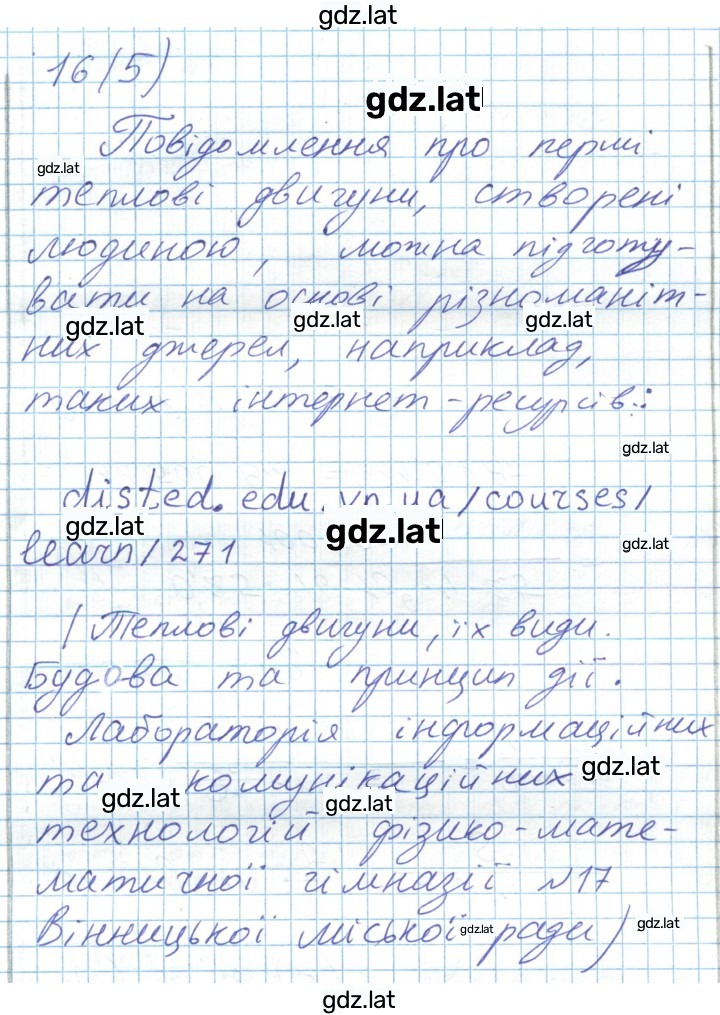 gdz.lat
16(5)
gdz.lat
Повідомлення про перші
gdz.lat
теплові двигуни, створені
людиною, можна підготу-
вати на основі різноманіт-
gdz.lat gdz.lat gdz.lat
них джерел, наприклад,
таких інтернет-ресурсів:
gdz.lat
disted.edu.vn.ua/courses/
gdz.lat gdz.lat gdz.lat
learn/271
(Теплові двигуни, їх види.
Будова та принцип дії.
Лабораторія інформаційних
та комунікаційних gdz.lat
gdz.lat gdz.lat
технологій фізико-мате-
матичної гімназії №17
Вінницької міської gdz.lat ради) gdz.lat
gdz.lat